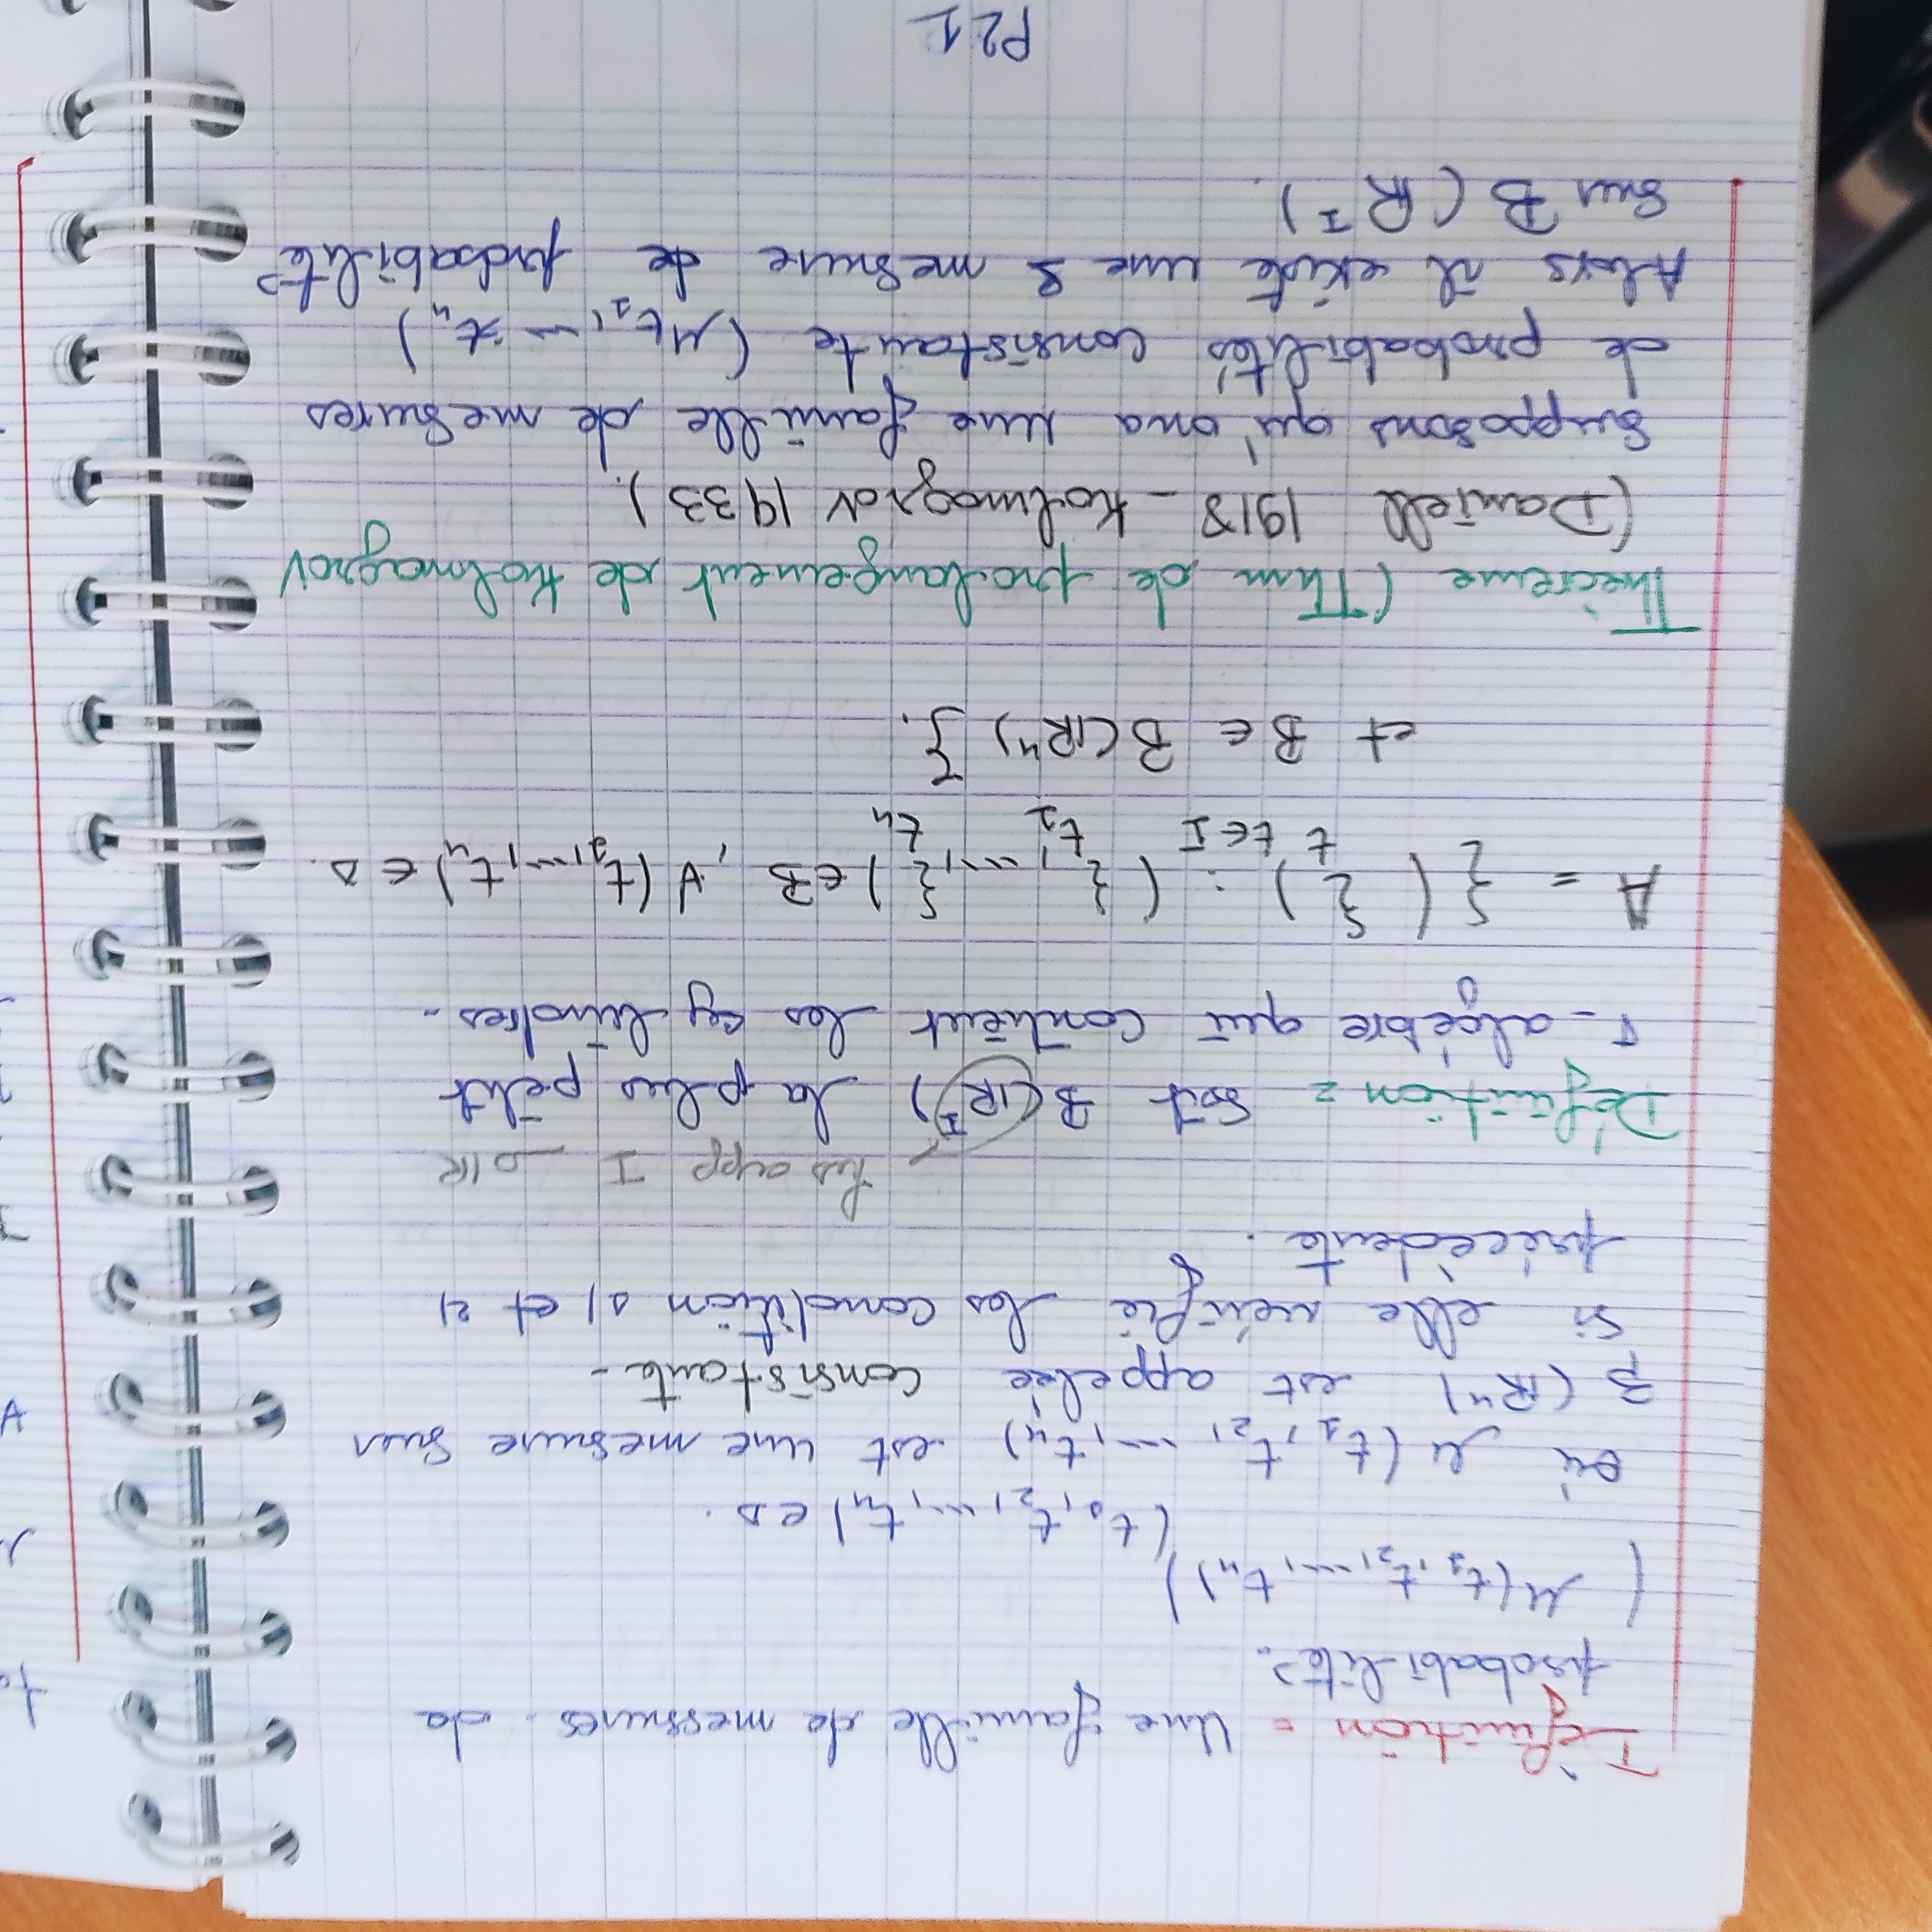 Définition = Une famille de messures de
probabilité.
( μ(t₁, t₂, ..., tₙ) )
(t₁, t₂, ..., tₙ) ∈ Δ.
où μ(t₁, t₂, ..., tₙ) est une mesure sur
B(ℝⁿ) est appelée consistante -
si elle vérifie les condition 1) et 2)
précédente.
les app I → ℝ
Définition = Soit B(ℝᴵ) la plus pétit
σ-algébre qui contient les cylindres.
A = { ( ξₜ )ₜ∈I : ( ξₜ₁, ..., ξₜₙ ) ∈ B, ∀ (t₁, ..., tₙ) ∈ Δ.
et B ∈ B(ℝⁿ) }.
Théoreme (Thm de prolangement de Kolmagrov
(Daniell 1918 - Kolmogrov 1933).
Supposons qu'on a une famille de mesures
de probabilités consistante (μt₁, ... tₙ)
Alors il existe une mesure de probabilité
sur B(ℝᴵ).
P21